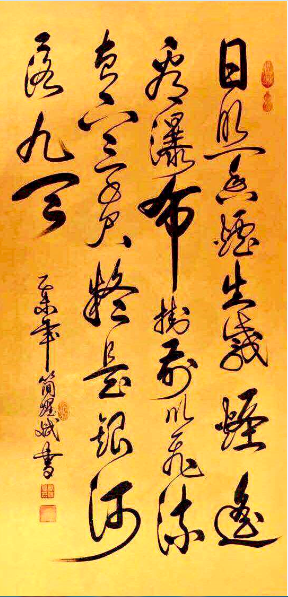 日照香爐生紫煙遙
看瀑布掛前川飛流
直下三千尺疑是銀河
落九天
乙未年 書